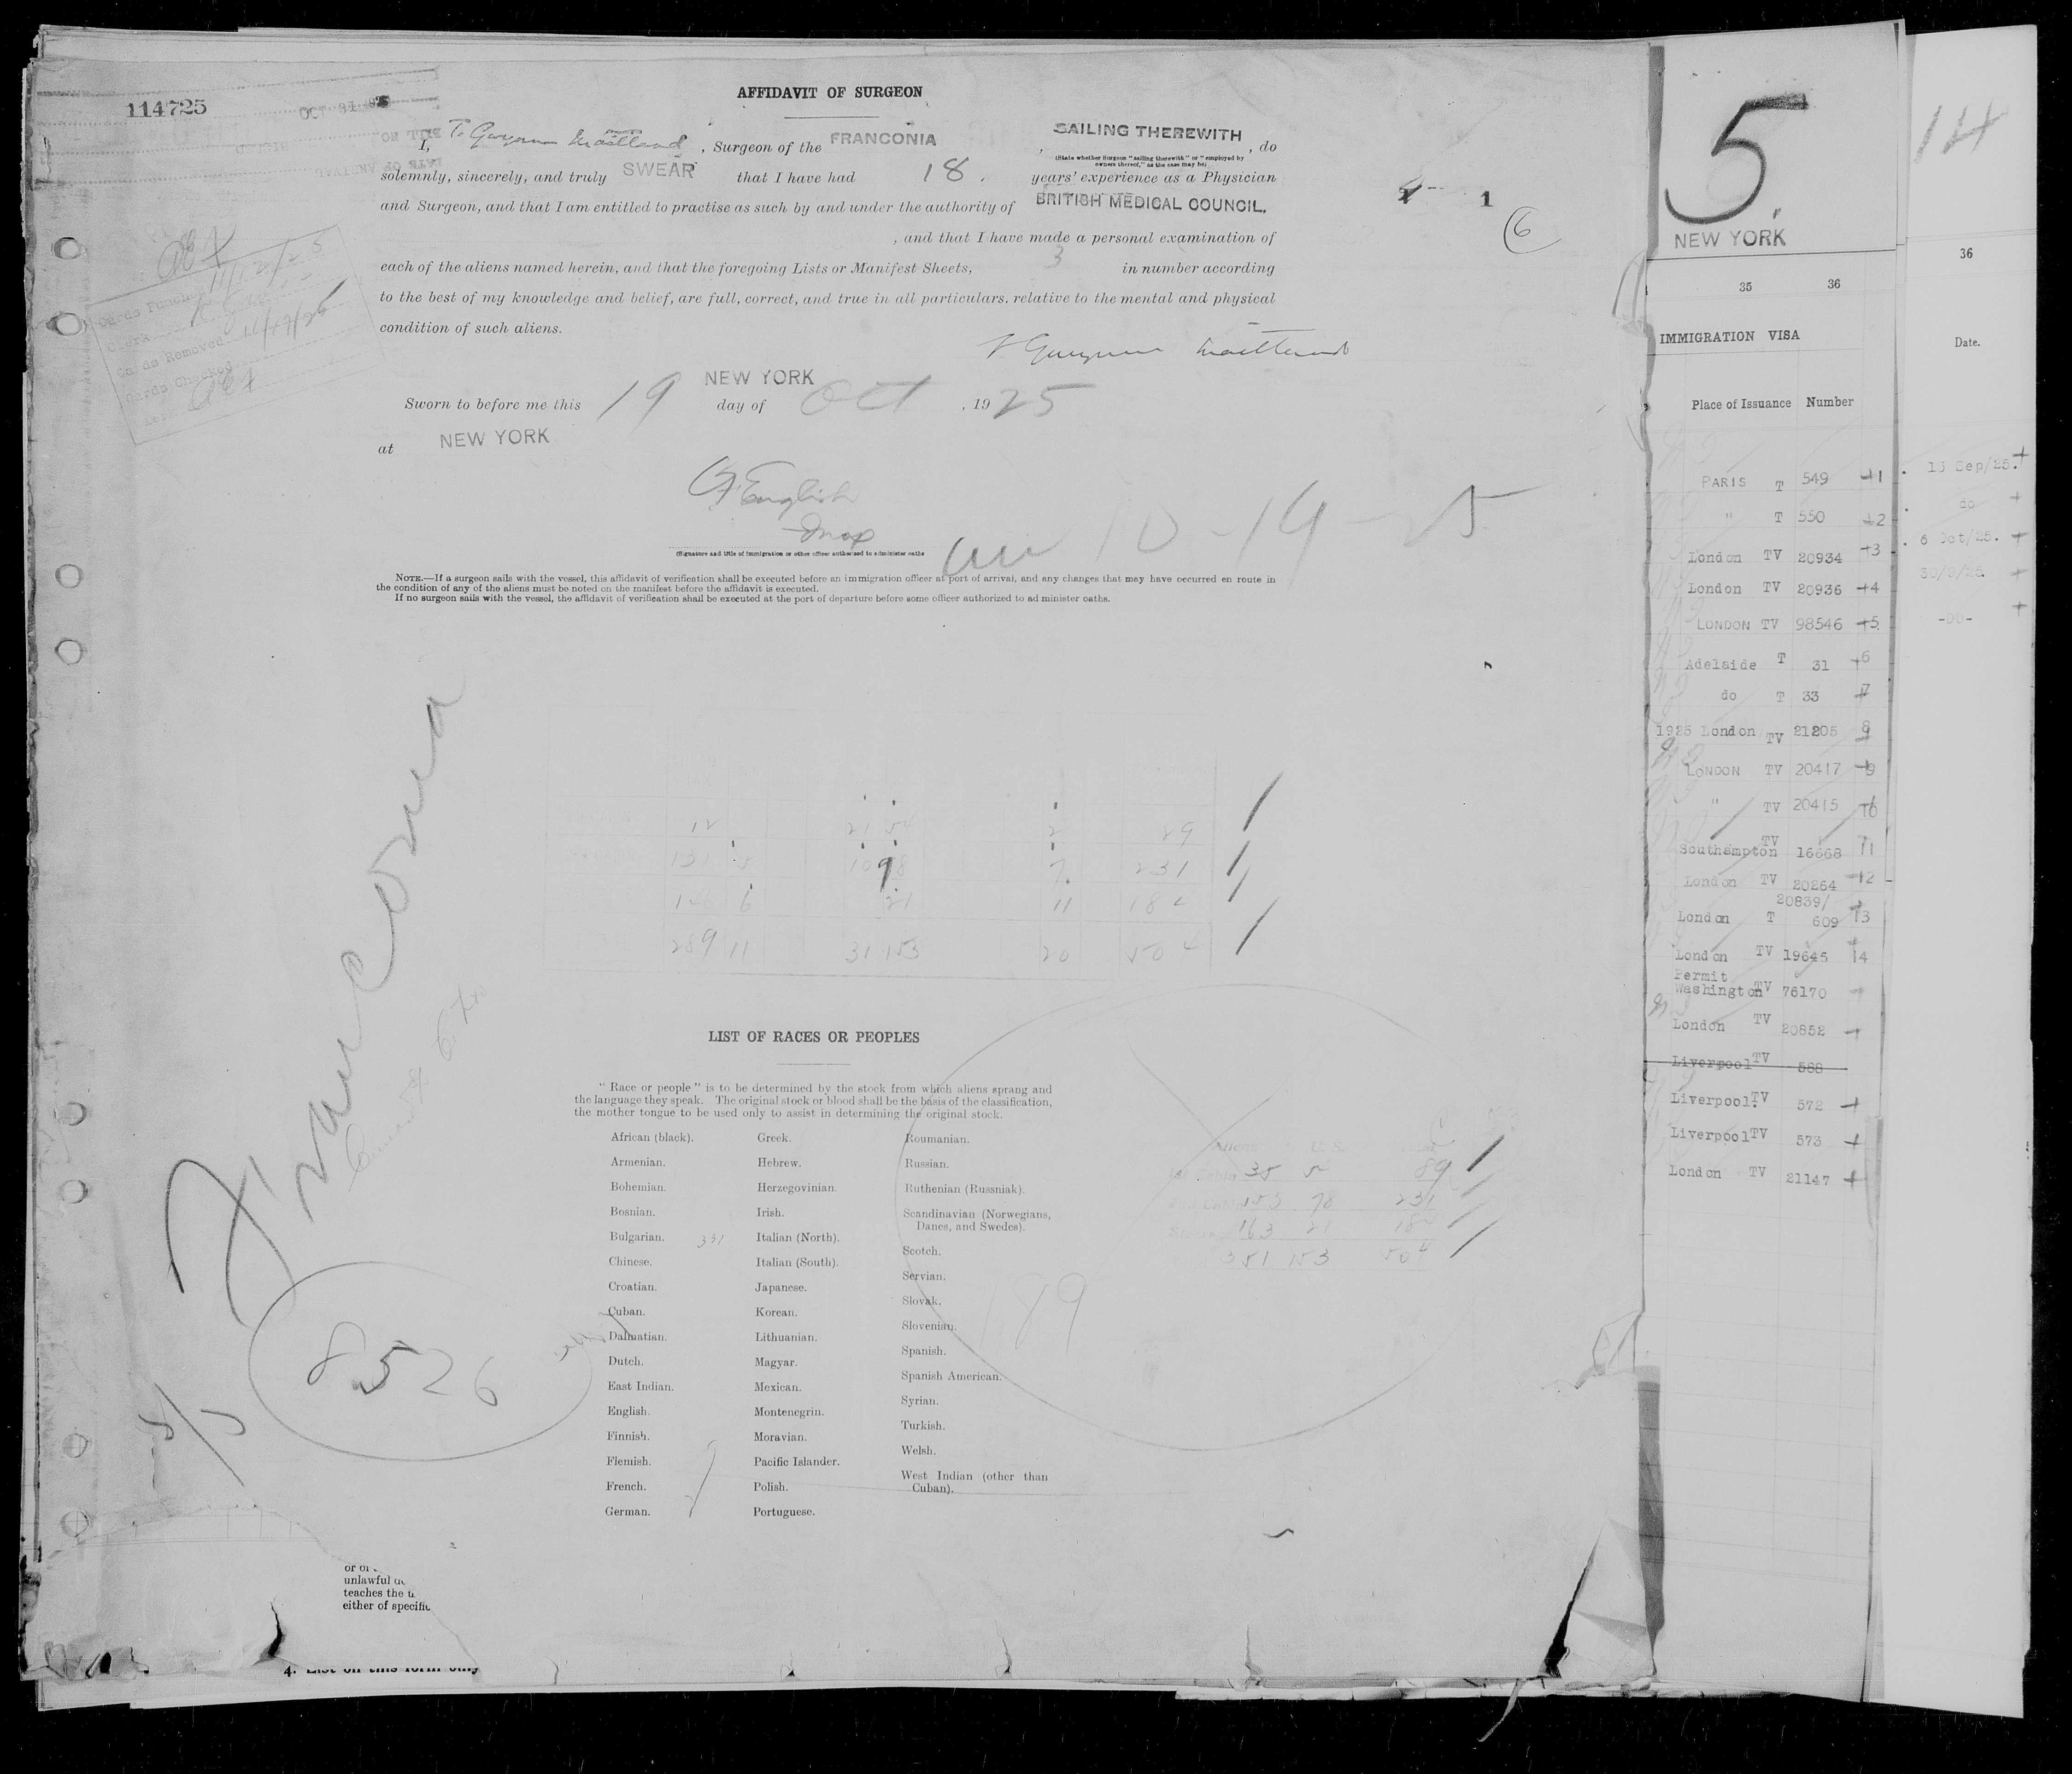 114725
AFFIDAVIT OF SURGEON
I, T. Gwynne Maitland, Surgeon of the FRANCONIA, SAILING THEREWITH, do
(State whether Surgeon "sailing therewith" or "employed by
owners thereof," as the case may be)
solemnly, sincerely, and truly SWEAR that I have had 18. years' experience as a Physician
and Surgeon, and that I am entitled to practise as such by and under the authority of BRITISH MEDICAL COUNCIL.
, and that I have made a personal examination of
each of the aliens named herein, and that the foregoing Lists or Manifest Sheets, 3 in number according
to the best of my knowledge and belief, are full, correct, and true in all particulars, relative to the mental and physical
condition of such aliens.
T Gwynne Maitland
NEW YORK
Sworn to before me this 19 day of Oct, 1925
at NEW YORK
English
Insp
(Signature and title of immigration or other officer authorized to administer oaths
10-19-25
NOTE.—If a surgeon sails with the vessel, this affidavit of verification shall be executed before an immigration officer at port of arrival, and any changes that may have occurred en route in
the condition of any of the aliens must be noted on the manifest before the affidavit is executed.
If no surgeon sails with the vessel, the affidavit of verification shall be executed at the port of departure before some officer authorized to ad minister oaths.
1
6
Cards Punched 11/12/25
Clerk
Cards Removed
Cards Checked
Franconia
8526
12 2 29
131 5 7 231
6 21 11 184
289 11 31 153 20 504
LIST OF RACES OR PEOPLES
"Race or people" is to be determined by the stock from which aliens sprang and
the language they speak. The original stock or blood shall be the basis of the classification,
the mother tongue to be used only to assist in determining the original stock.
African (black).
Armenian.
Bohemian.
Bosnian.
Bulgarian.
Chinese.
Croatian.
Cuban.
Dalmatian.
Dutch.
East Indian.
English.
Finnish.
Flemish.
French.
German.
Greek.
Hebrew.
Herzegovinian.
Irish.
Italian (North).
Italian (South).
Japanese.
Korean.
Lithuanian.
Magyar.
Mexican.
Montenegrin.
Moravian.
Pacific Islander.
Polish.
Portuguese.
Roumanian.
Russian.
Ruthenian (Russniak).
Scandinavian (Norwegians,
Danes, and Swedes).
Scotch.
Servian.
Slovak.
Slovenian.
Spanish.
Spanish American.
Syrian.
Turkish.
Welsh.
West Indian (other than
Cuban).
Aliens U. S.
35 5 89
153 78 231
163 21 184
351 153 504
189
unlawful
teaches the
either of specific
4. List on this form only
5
NEW YORK
35 36
IMMIGRATION VISA
Place of Issuance Number
PARIS T 549 1
" T 550 2
London TV 20934 3
London TV 20936 4
LONDON TV 98546 5
Adelaide T 31 6
do T 33 7
1925 London TV 21205 8
LONDON TV 20417 9
" TV 20415 10
Southampton TV 16668 11
London TV 20264 12
20839/
London T 609 13
London TV 19645 14
Permit
Washington TV 76170
London TV 20852
Liverpool TV 588
Liverpool. TV 572
Liverpool TV 573
London TV 21147
14
36
Date.
15 Sep/25.
do
6 Oct/25.
30/9/25.
-DO-